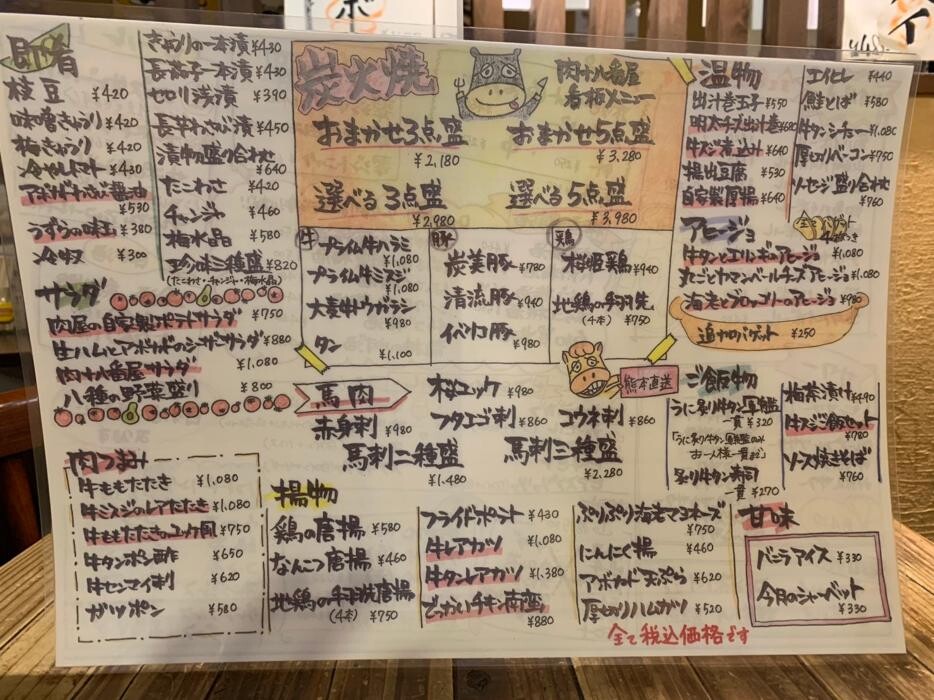 即肴
枝豆 ¥420
味噌きゅうり ¥420
梅きゅうり ¥420
冷やしトマト ¥430
アボカドわさび醤油 ¥530
うずらの味玉 ¥380
冷奴 ¥300
きゅうりの一本漬 ¥430
長茄子一本漬 ¥430
セロリ浅漬 ¥390
長芋わさび漬 ¥450
漬物盛り合わせ ¥640
たこわさ ¥420
チャンジャ ¥460
梅水晶 ¥580
珍味三種盛 ¥820
(たこわさ・チャンジャ・梅水晶)
サラダ
肉屋の自家製ポテトサラダ ¥750
生ハムとアボカドのシーザーサラダ ¥880
肉十八番屋サラダ ¥1,080
八種の野菜盛り ¥800
肉つまみ
牛ももたたき ¥1,080
牛ミスジのレアたたき ¥1,080
牛ももたたきのユッケ風 ¥750
牛タンポン酢 ¥650
牛センマイ刺 ¥620
ガツポン ¥580
炭火焼
肉十八番屋
看板メニュー
おまかせ3点盛 ¥2,180
おまかせ5点盛 ¥3,280
選べる3点盛 ¥2,980
選べる5点盛 ¥3,980
牛
プライム牛ハラミ ¥1,080
プライム牛ミスジ ¥1,080
大麦牛トウガラシ ¥980
タン ¥1,100
豚
炭美豚 ¥780
清流豚 ¥940
イベリコ豚 ¥980
鶏
桜姫鶏 ¥940
地鶏の手羽先
(4本) ¥750
馬肉
熊本直送
赤身刺 ¥980
桜ユッケ ¥980
フタエゴ刺 ¥860
コウネ刺 ¥860
馬刺二種盛 ¥1,480
馬刺三種盛 ¥2,280
揚物
鶏の唐揚 ¥580
なんこつ唐揚 ¥460
地鶏の手羽先唐揚
(4本) ¥750
フライドポテト ¥430
牛レアカツ ¥1,080
牛タンレアカツ ¥1,380
でっかいチキン南蛮 ¥880
ぷりぷり海老マヨネーズ ¥750
にんにく揚 ¥460
アボカド天ぷら ¥620
厚切りハムカツ ¥520
温物
出汁巻玉子 ¥550
明太チーズ出汁巻 ¥680
牛スジ煮込み ¥640
揚出豆腐 ¥530
自家製厚揚 ¥640
エイヒレ ¥440
鮭とば ¥580
牛タンシチュー ¥1,080
厚切りベーコン ¥750
ソーセージ盛り合わせ ¥760
アヒージョ
牛タンとエリンギのアヒージョ ¥1,080
丸ごとカマンベールチーズアヒージョ ¥1,080
海老とブロッコリーのアヒージョ ¥980
追加バゲット ¥250
ご飯物
うに炙り牛タン軍艦
一貫 ¥320
「うに炙り牛タン」軍艦のみ
お一人様一貫まで
炙り牛タン寿司
一貫 ¥270
梅茶漬け ¥490
牛スジご飯セット ¥780
ソース焼きそば ¥760
甘味
バニラアイス ¥330
今月のシャーベット ¥330
全て税込価格です